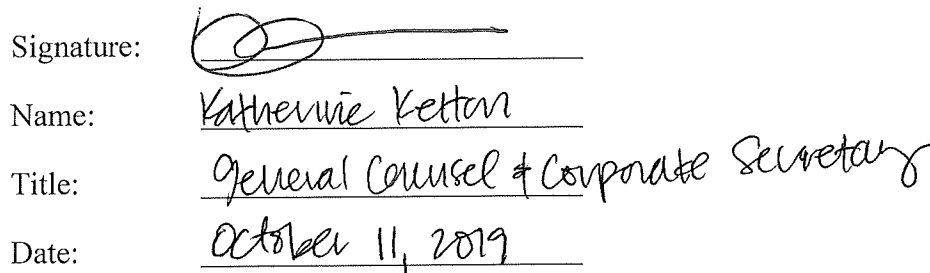 Signature:
Name: Katherine Ketton
Title: General Counsel & Corporate Secretary
Date: October 11, 2019